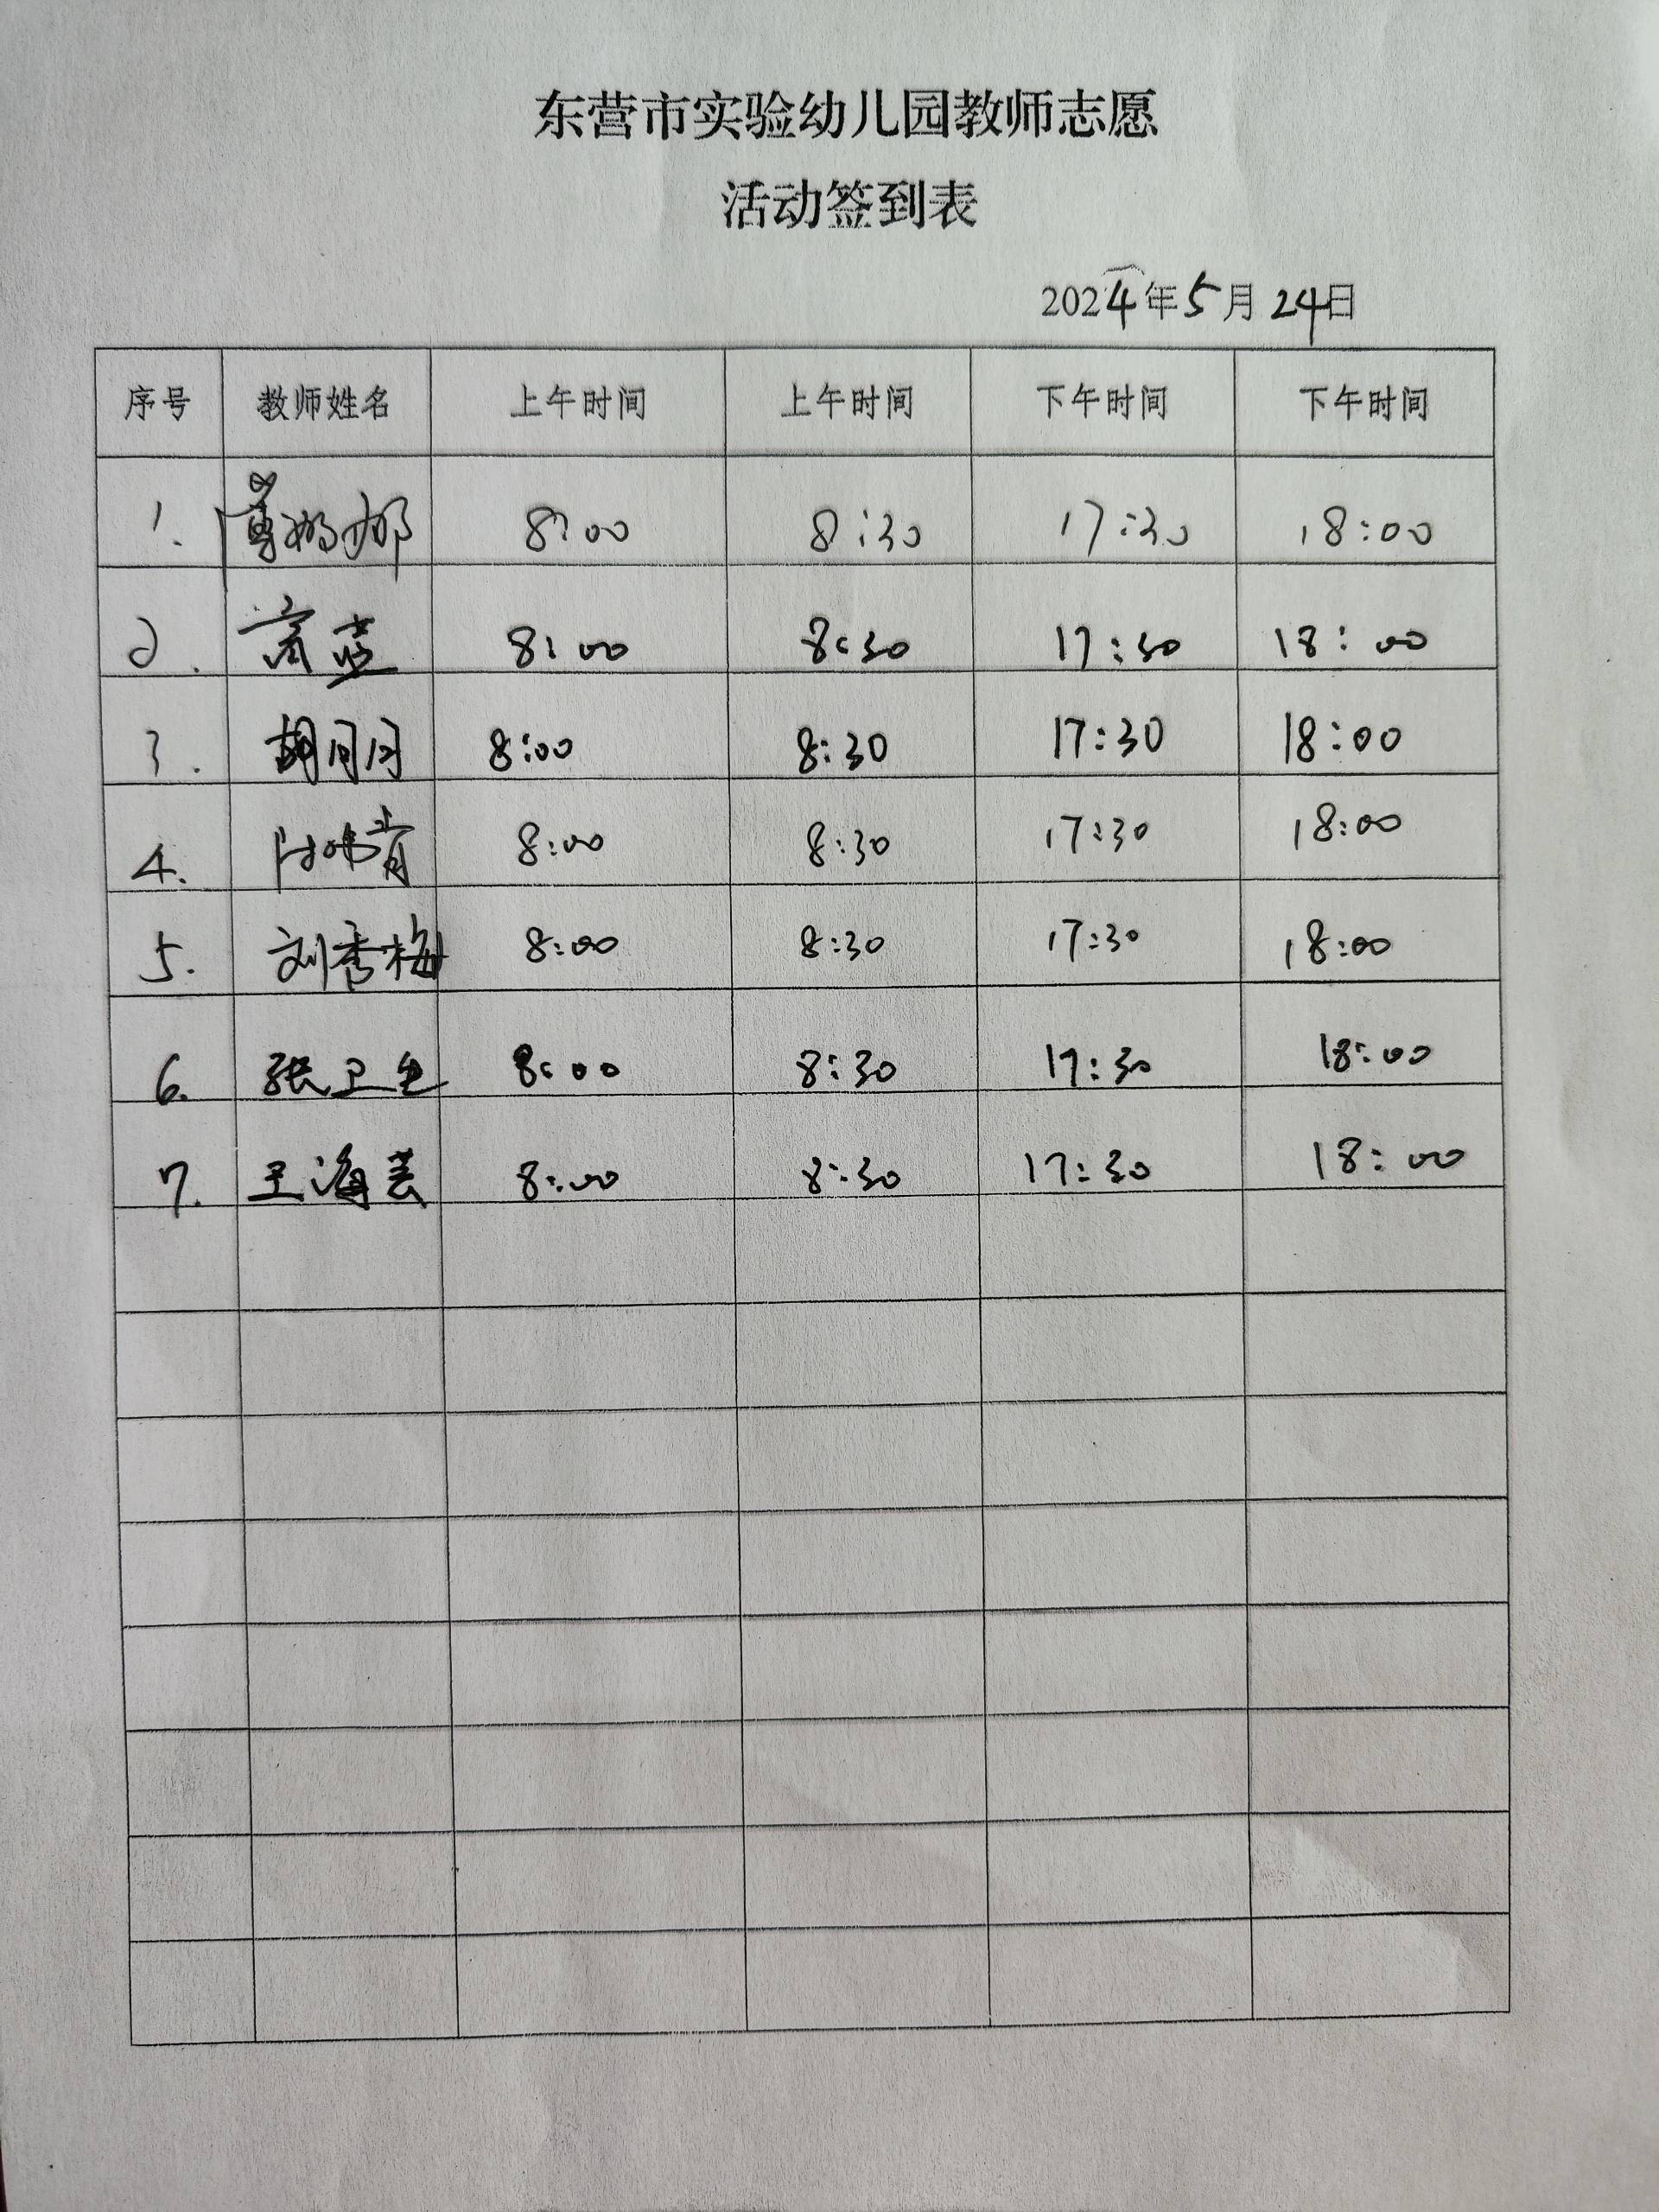 东营市实验幼儿园教师志愿
活动签到表
2024年5月24日
序号 教师姓名 上午时间 上午时间 下午时间 下午时间
1. 8:00 8:30 17:30 18:00
2. 8:00 8:30 17:30 18:00
3. 胡月月 8:00 8:30 17:30 18:00
4. 8:00 8:30 17:30 18:00
5. 刘秀梅 8:00 8:30 17:30 18:00
6. 张卫生 8:00 8:30 17:30 18:00
7. 王海芸 8:00 8:30 17:30 18:00